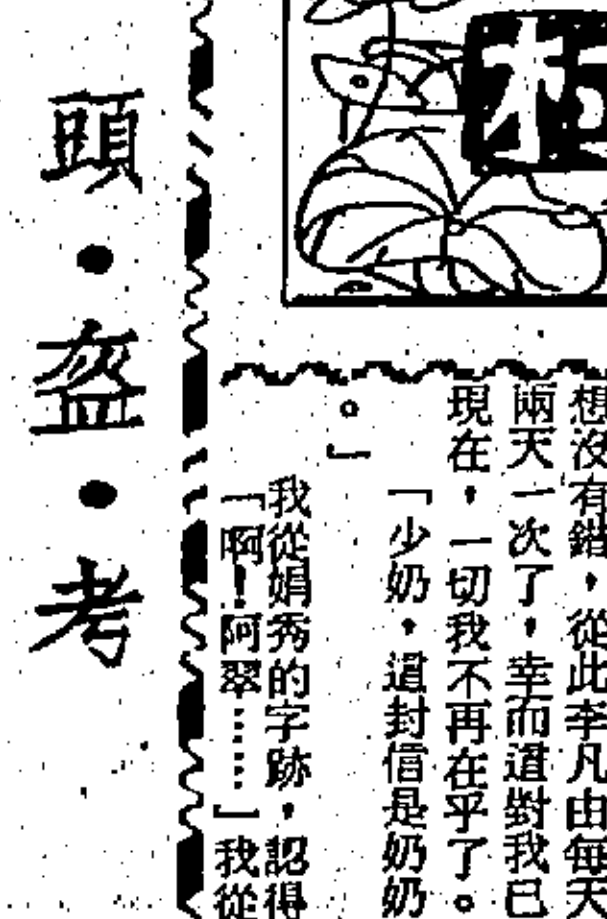 想沒有錯，從此李凡由每天
兩天一次了，幸而這對我已
現在，一切我不再在乎了。
「少奶，這封信是奶奶
。」
我從娟秀的字跡，認得
「啊！阿翠……」我從
頭•盔•考